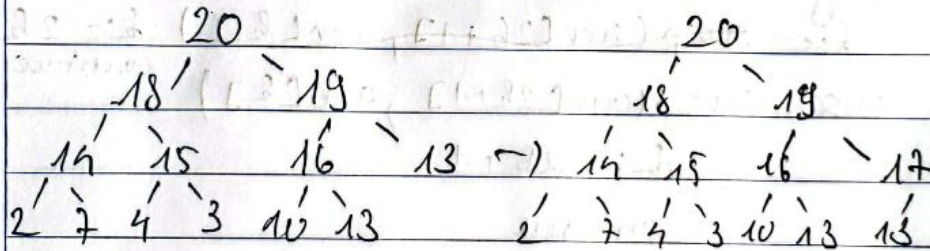 20 20
18 19 18 19
14 15 16 13 → 14 15 16 17
2 7 4 3 10 13 2 7 4 3 10 13 13